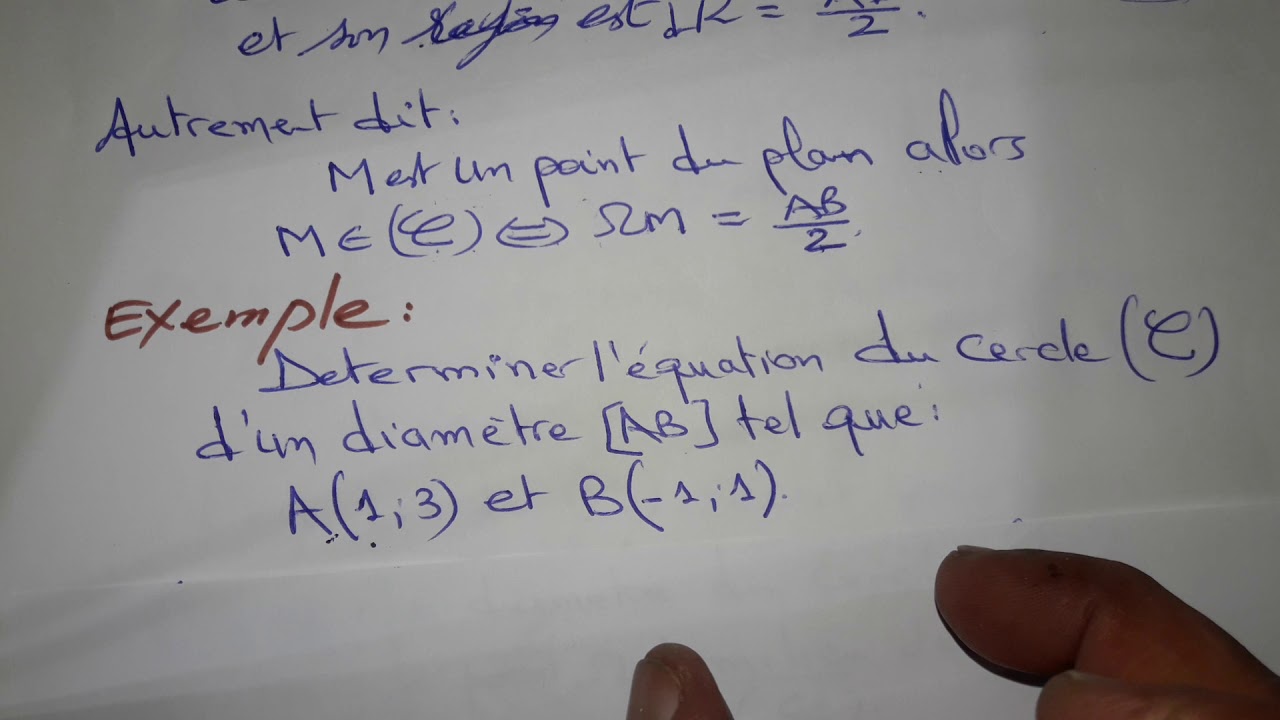 et son rayon est R = AB/2.
Autrement dit:
M est un point du plan alors
M ∈ (C) ⇔ ΩM = AB/2.
Exemple:
Determiner l'équation du cercle (C)
d'un diamètre [AB] tel que:
A(1;3) et B(-1;1).